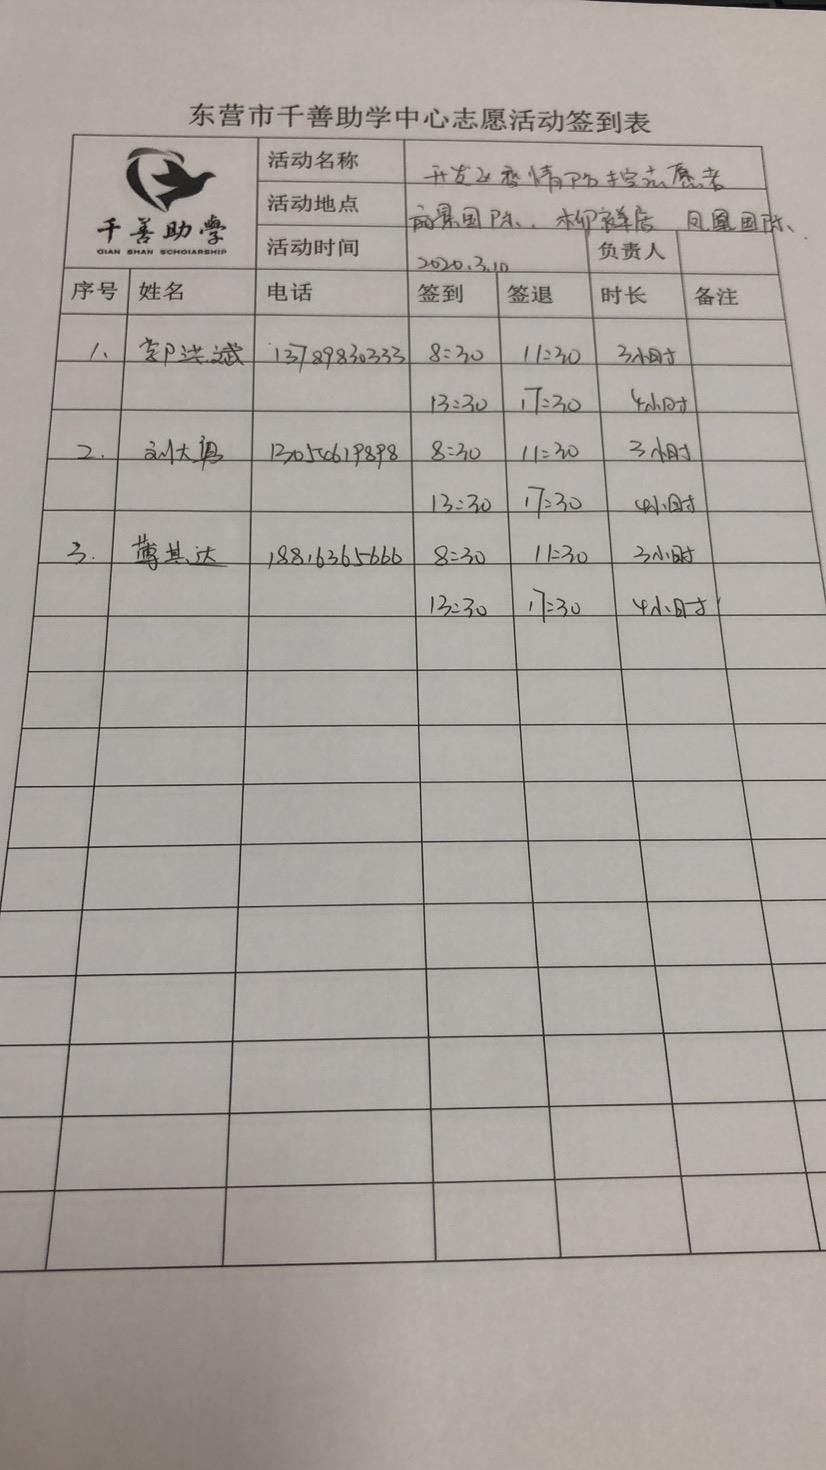 东营市千善助学中心志愿活动签到表
千善助学
QIAN SHAN SCHOLARSHIP
活动名称 开发区疫情防控志愿者
活动地点 商景园陈、柳祥店 凤凰园陈、
活动时间 2020.3.10 负责人
序号 姓名 电话 签到 签退 时长 备注
1、 郭洪斌 13789830333 8:30 11:30 3小时
13:30 17:30 4小时
2. 刘大勇 13054619898 8:30 11:30 3小时
13:30 17:30 4小时
3. 薄其达 18816365666 8:30 11:30 3小时
13:30 17:30 4小时